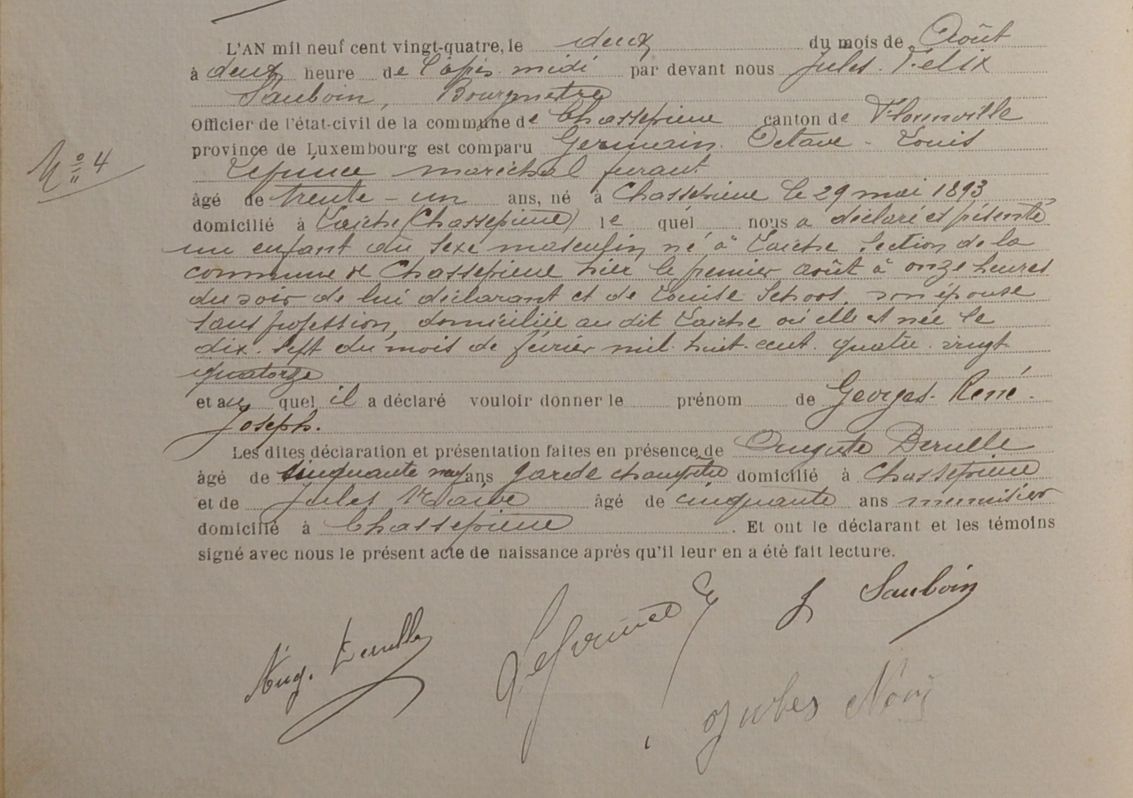 L'AN mil neuf cent vingt-quatre, le deux du mois de Août
à deux heure de l'après midi par devant nous Jules-Félix
Sauboin, Bourgmetre
Officier de l'état-civil de la commune de Chassepierre canton de Florenville
province de Luxembourg est comparu Germain Octave-Louis
maréchal ferant
N° 4
âgé de trente-un ans, né à Chassepierre le 29 mai 1893
domicilié à Laiche (Chassepierre) le quel nous a déclaré et présenté
un enfant du sexe masculin, né à Laiche Section de la
commune de Chassepierre hier le premier août à onze heures
du soir de lui déclarant et de Louise Schoot, son épouse
sans profession, domiciliée au dit Laiche où elle est née le
dix-sept du mois de février mil-huit-cent-quatre-vingt
quatorze
et au quel il a déclaré vouloir donner le prénom de Georges-René-
Joseph.
Les dites déclaration et présentation faites en présence de Auguste
âgé de cinquante neuf ans garde champêtre domicilié à Chassepierre
et de Jules âgé de cinquante ans menuisier
domicilié à Chassepierre. Et ont le déclarant et les témoins
signé avec nous le présent acte de naissance après qu'il leur en a été fait lecture.
J Sauboin
Aug.
Jules